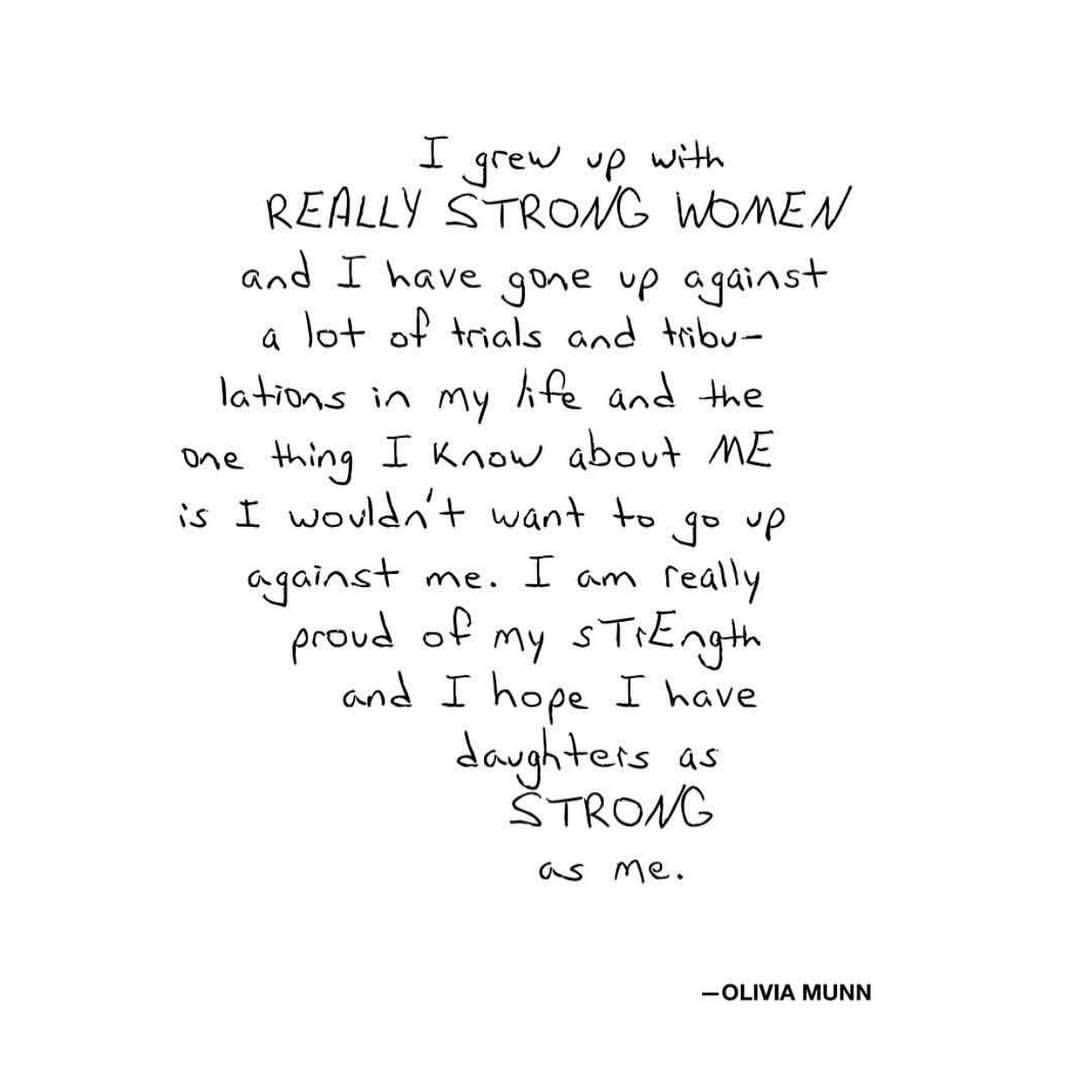 I grew up with
REALLY STRONG WOMEN
and I have gone up against
a lot of trials and tribu-
lations in my life and the
one thing I know about ME
is I wouldn't want to go up
against me. I am really
proud of my sTrEngth
and I hope I have
daughters as
STRONG
as me.
—OLIVIA MUNN